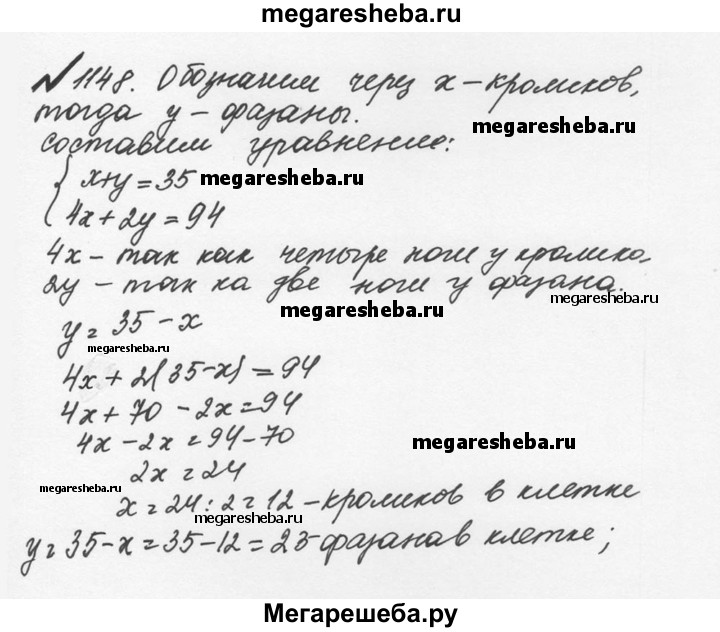 megaresheba.ru
№1148. Обозначим через х – кроликов,
тогда у – фазаны.
megaresheba.ru
составим уравнение:
{ х+у = 35 megaresheba.ru
4х + 2у = 94
4х – так как четыре ноги у кролико,
2у – так ка две ноги у фазана.
megaresheba.ru
megaresheba.ru
у = 35 – х
megaresheba.ru
4х + 2(35–х) = 94
4х + 70 – 2х = 94
4х – 2х = 94 – 70
megaresheba.ru
2х = 24
megaresheba.ru
х = 24 : 2 = 12 – кроликов в клетке
megaresheba.ru
у = 35 – х = 35 – 12 = 23 фазана в клетке;
Мегарешеба.ру